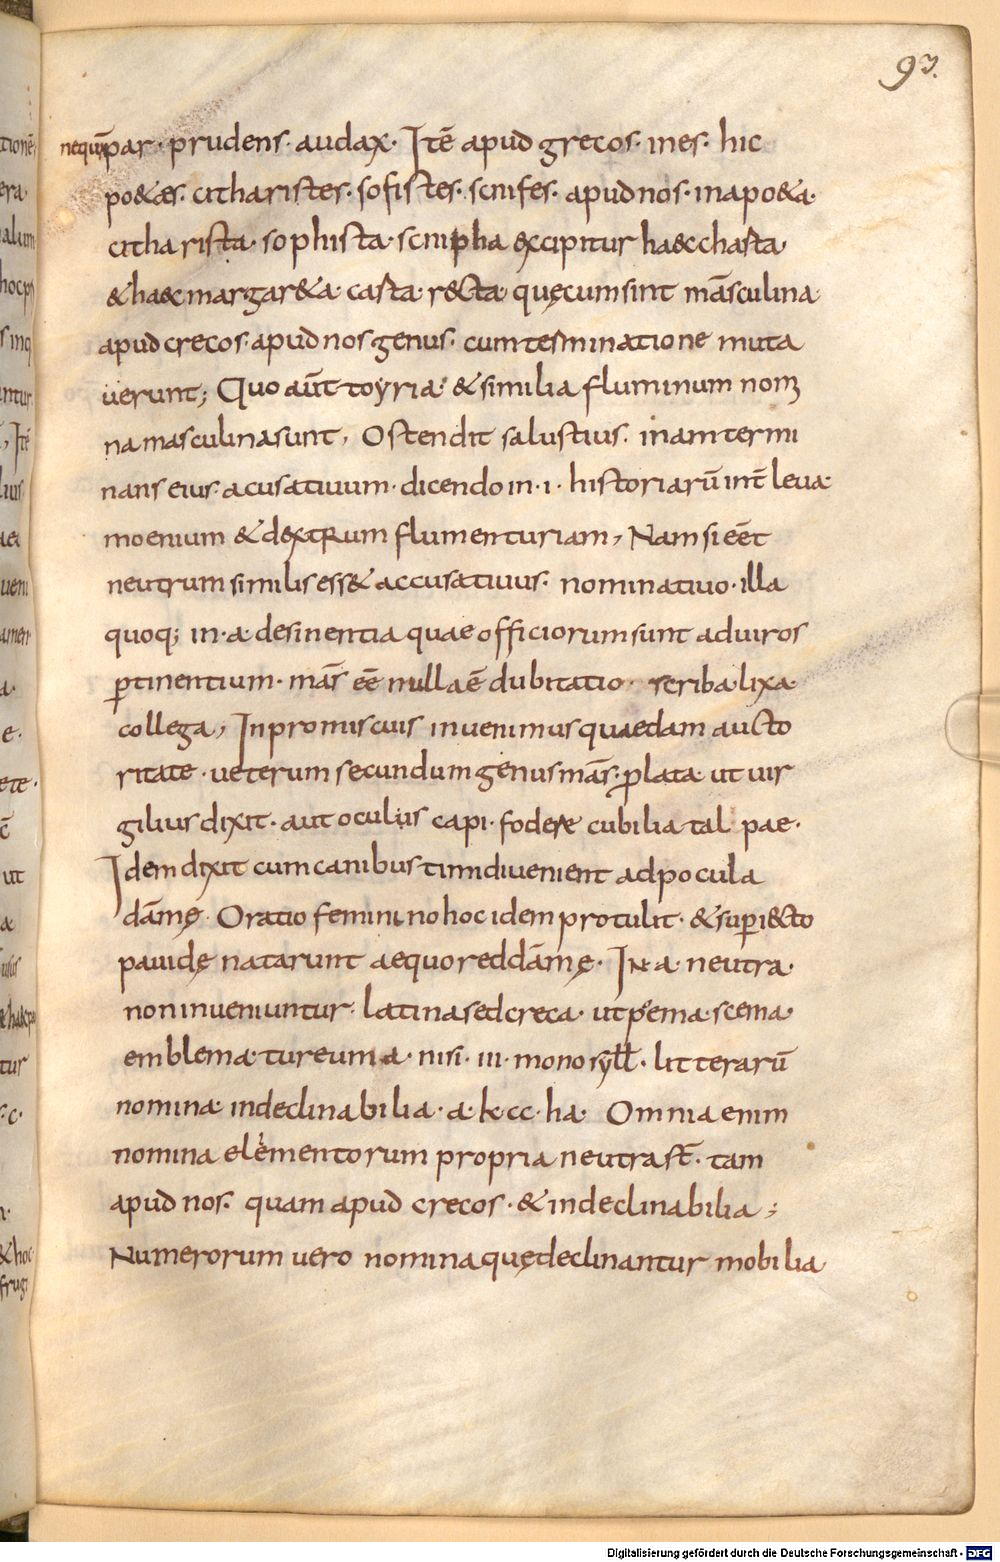 93.
nequā par· prudens· audax· Itē apud grecos· ines· hic
po&aes· citharistes· sofistes· scnifes· apud nos· in a po&a·
citharista· sophista· scnipha excipitur haec chasta
& haec margar&a casta recta quęcum sint mās̄culina
apud crecos· apud nos genus· cum terminatione muta
uerunt; Quo aut̄ toyria· & similia fluminum nom
na masculina sunt, Ostendit salustius· in am termi
nans eius acusatiuum· dicendo in ·i· historiarū int̄ leua
moenium & dextrum flumen turiam, Nam si eēt
neutrum similis ess& accusatiuus· nominatiuo· illa
quoq; in ·a· desinentia quae officiorum sunt ad uiros
ꝑtinentium· mās̄ eē nulla ē dubitatio· scriba lixa·
collega, In promiscuis inuenimus quaedam aucto
ritate· ueterum secundum genus mās̄· ꝓlata ut uir
gilius dixit· aut oculis capi· fodere cubilia tal pae·
Idem dixit cum canibus timidi uenient ad pocula
dāmę· Oratio feminino hoc idem protulit· & suꝑiecto
pauidę natarunt aequore dāmę· In ·a· neutra·
non inueniuntur· latina sed creca· ut poema· scema·
emblema· tureuma· nisi ·iii· monosyll̄· litterarū
nomina indeclinabilia· a· k· cc· ha· Omnia enim
nomina elementorum propria neutra sт̄· tam
apud nos· quam apud crecos· & indeclinabilia;
Numerorum uero nomina quę declinantur mobilia
Digitalisierung gefördert durch die Deutsche Forschungsgemeinschaft - DFG